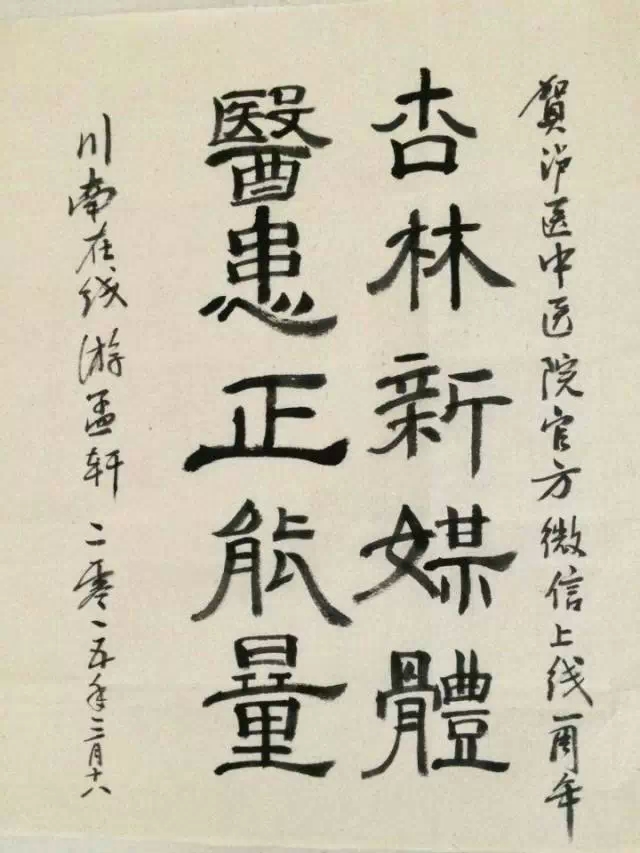 贺泸医中医院官方微信上线一周年
杏林新媒體
醫患正能量
川南在线游孟轩二零一五年三月十八